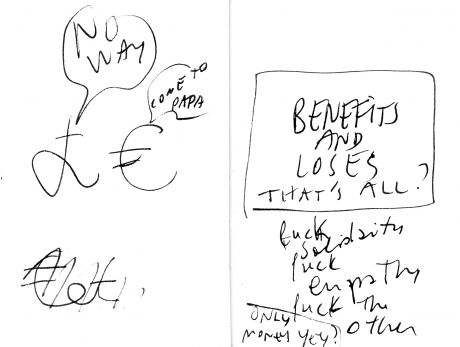 NO
WAY
COME TO
PAPA
£ €
BENEFITS
AND
LOSES
THAT'S ALL?
fuck
solidarity
fuck
empathy
fuck the
other
ONLY
MONEY YEY?